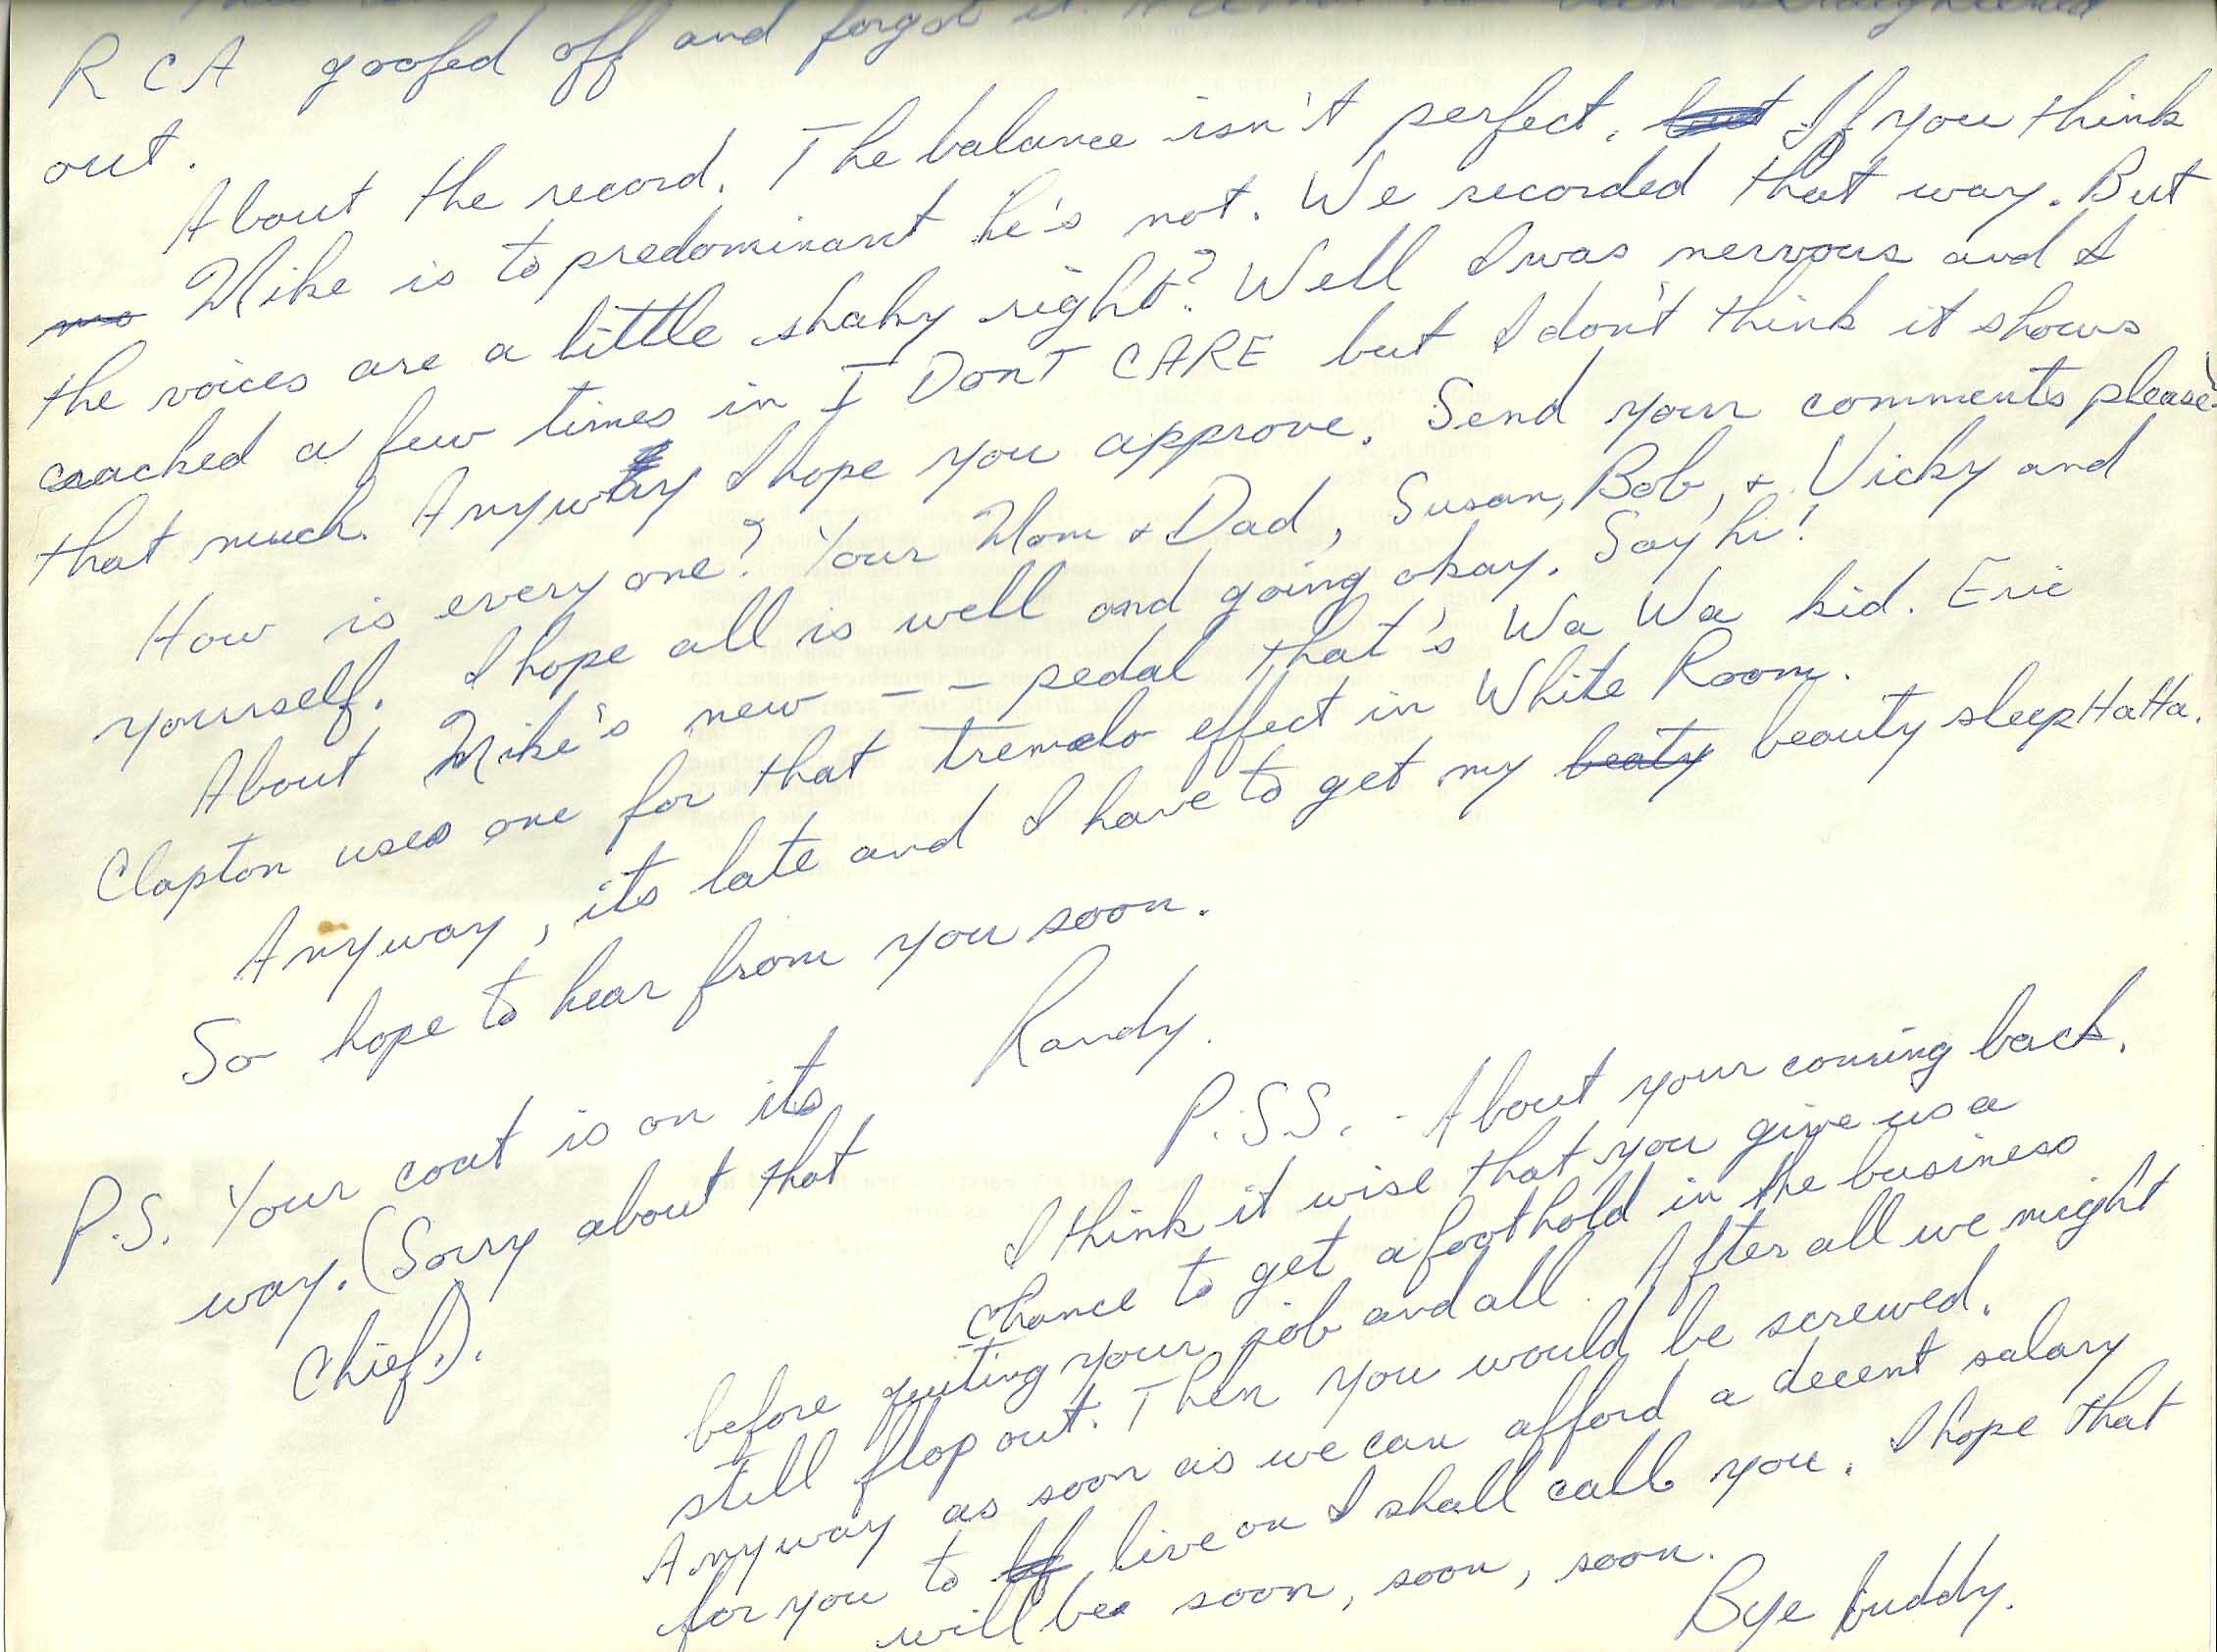 R C A goofed off and forgot it.
out.
About the record. The balance isn't perfect. but If you think
Mike is to predominant he's not. We recorded that way. But
the voices are a little shaky right? Well I was nervous and I
cracked a few times in I DonT CARE but I don't think it shows
that much. Anyway I hope you approve. Send your comments please.
How is every one? Your Mom + Dad, Susan, Bob, + Vicky and
yourself. I hope all is well and going okay. Say hi!
About Mike's new - - - pedal that's Wa Wa kid. Eric
Clapton uses one for that tremelo effect in White Room.
Anyway, its late and I have to get my beaty beauty sleep HaHa.
So hope to hear from you soon.
Randy.
P.S. Your coat is on its
way. (Sorry about that
Chief.).
P.S.S. - About your coming back.
I think it wise that you give us a
chance to get a foothold in the business
before quiting your job and all. After all we might
still flop out. Then you would be screwed.
Anyway as soon as we can afford a decent salary
for you to live on I shall call you. I hope that
will be soon, soon, soon.
Bye buddy.